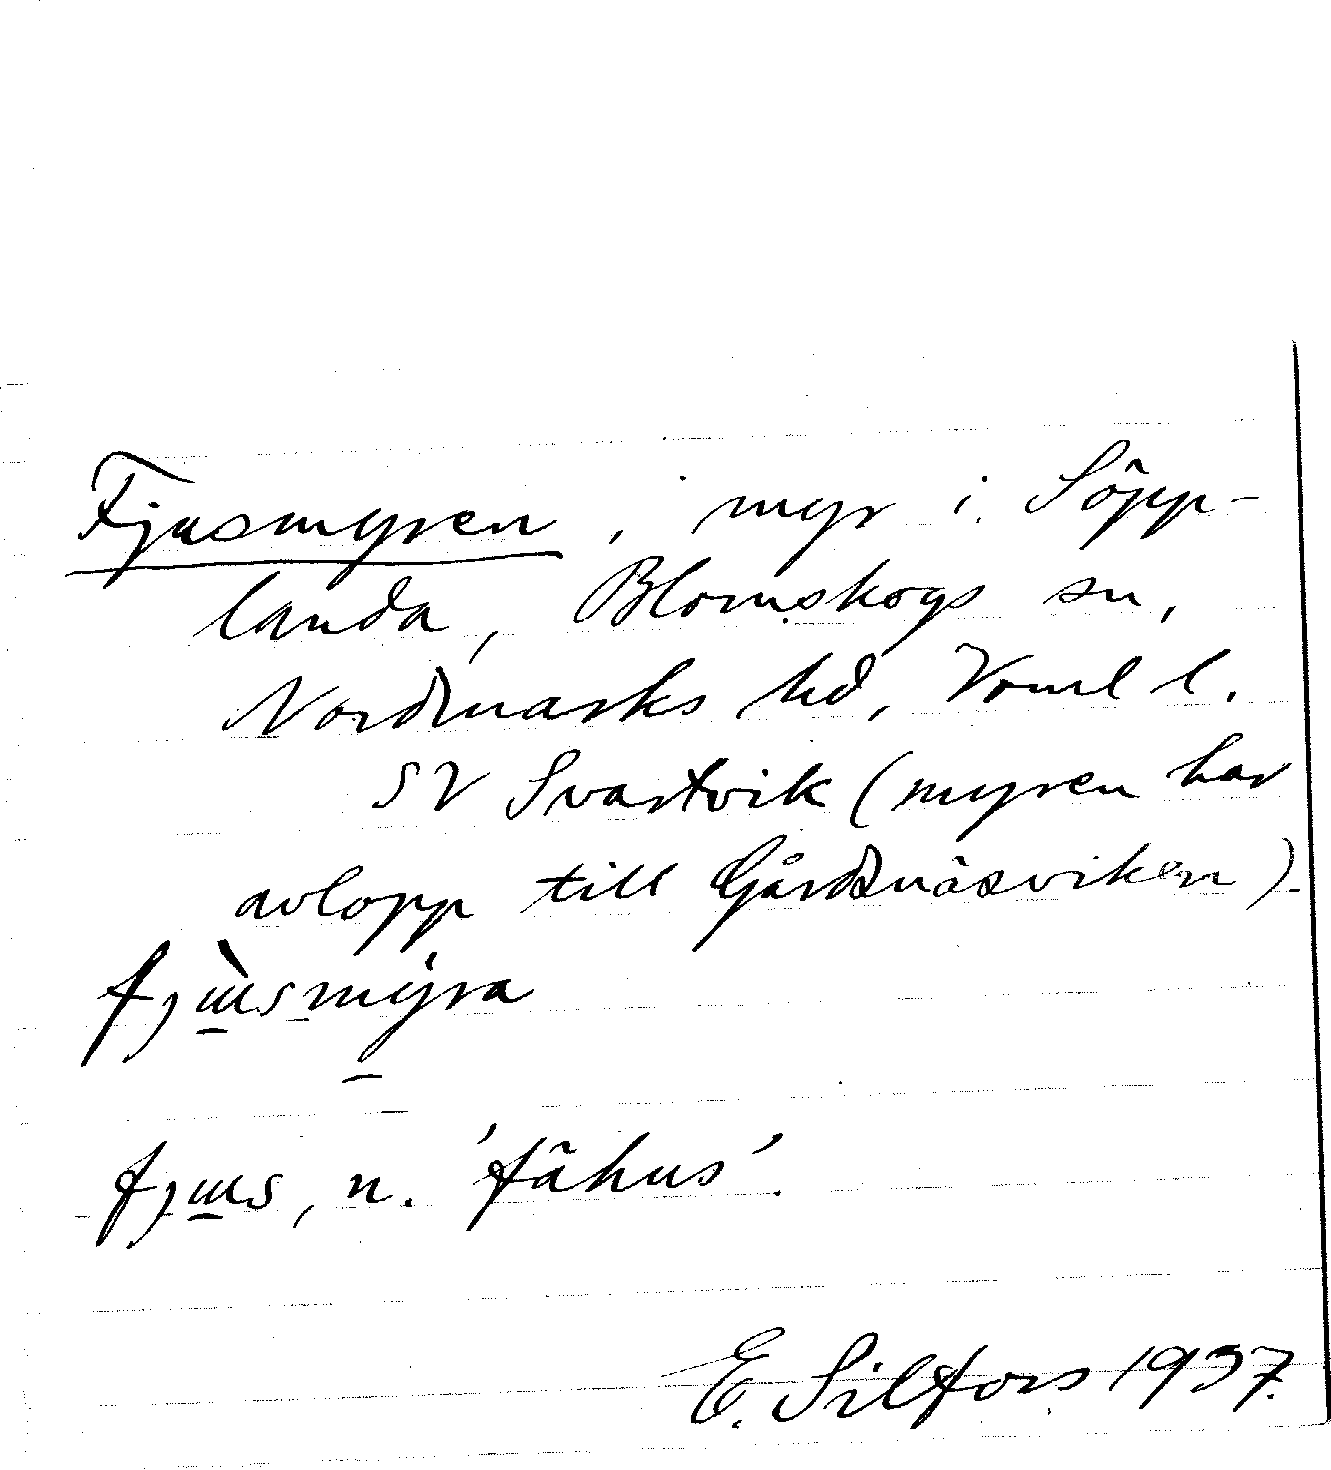 Fjusmyren, myr i Söpp-
landa, Blomskogs sn,
Nordmarks hd, Vrml l.
SV Svartvik (myren har
avlopp till Gårdsnäsviken).
fjɯ̀smýra
fjɯs, n. 'fähus'.
E. Silfors 1937.